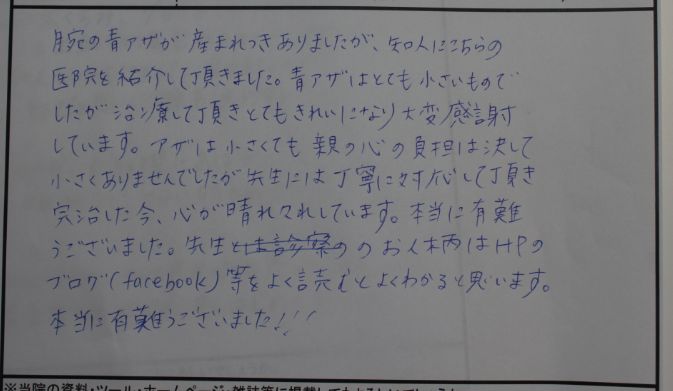 腕の青アザが産まれつきありましたが、知人にこちらの
医院を紹介して頂きました。青アザはとても小さいもので
したが治療して頂きとてもきれいになり大変感謝
しています。アザは小さくても親の心の負担は決して
小さくありませんでしたが先生には丁寧に対応して頂き
完治した今、心が晴れ晴れしています。本当に有難
うございました。先生とは診察ののお人柄はHPの
ブログ(facebook)等をよく読むとよくわかると思います。
本当に有難うございました!!!
※当院の資料・ツール・ホームページ・雑誌等に掲載して